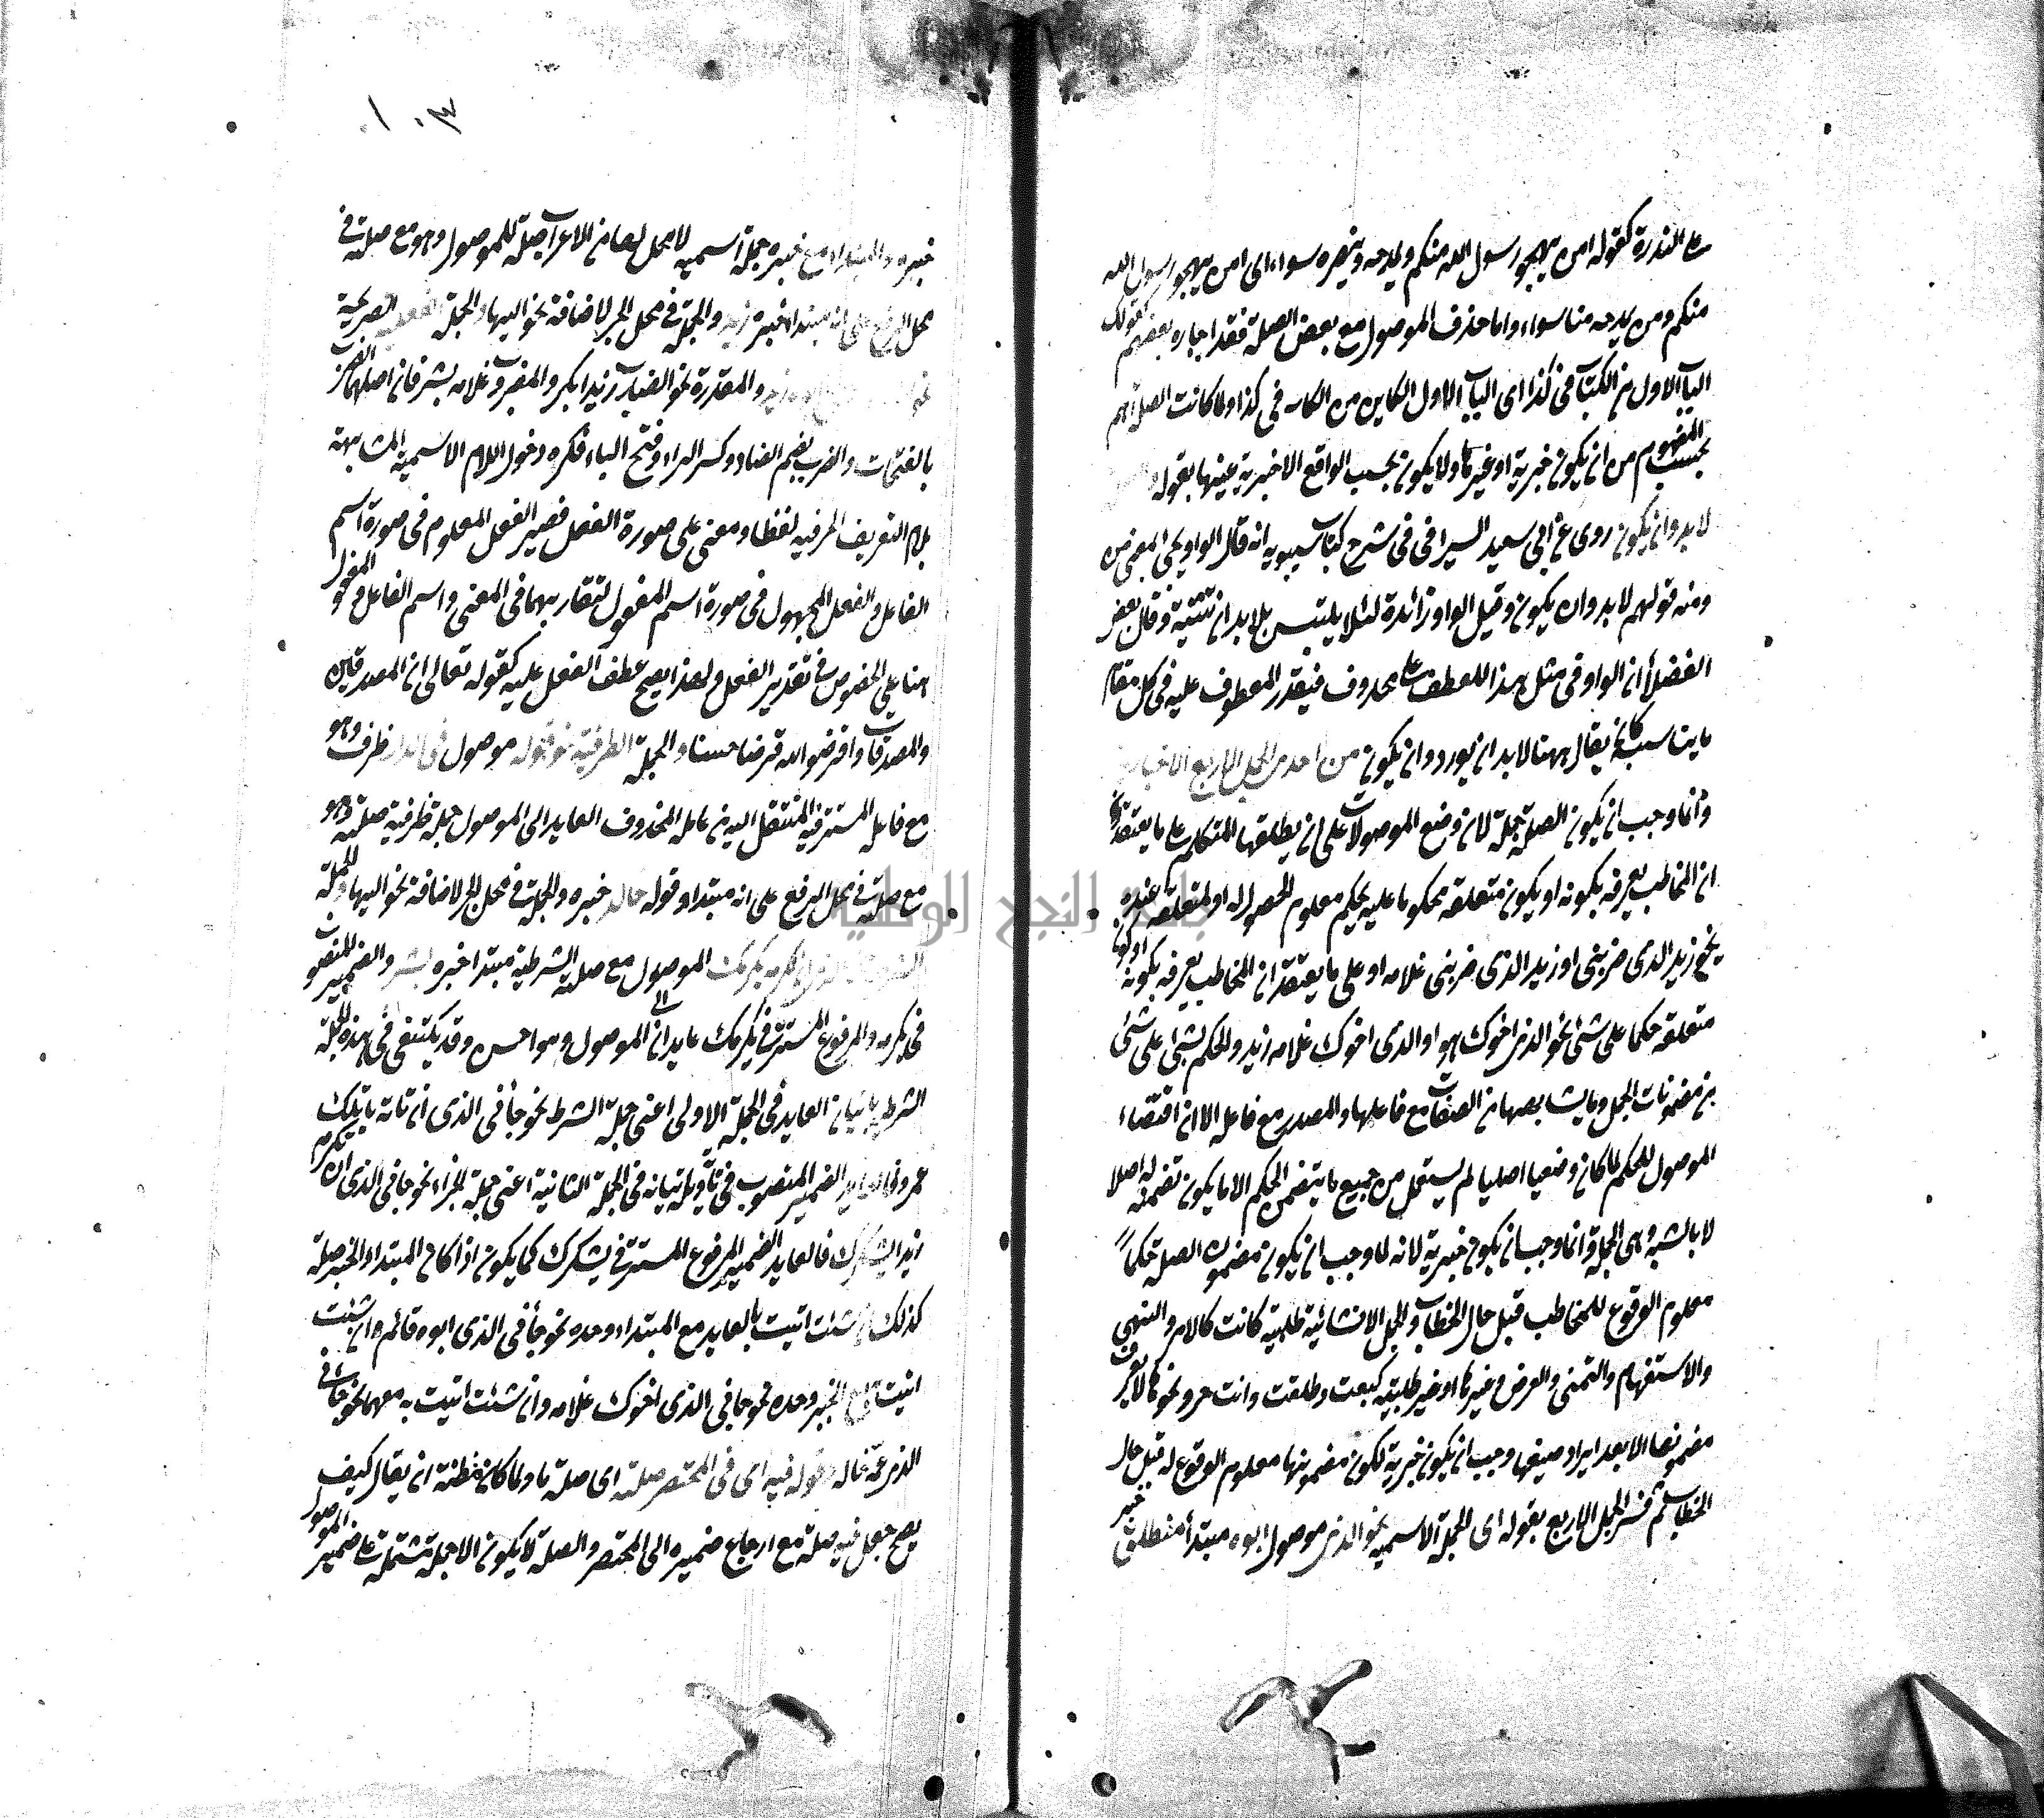 على الندرة كقوله امن يهجو رسول الله منكم ويمدحه وينصره سواء اى امن يهجو رسول الله
منكم ومن يمدحه منا سواء واما حذف الموصول مع بعض الصلة فقد اجازه بعضهم كقولك
الباب الاول من الكتاب فى كذا اى الباب الاول الكاين من الكتاب فى كذا ولما كانت الصلة اعم
بحسب المفهوم من ان يكون خبرية او غيرها ولا يكون بحسب الواقع الا خبرية عينها بقوله
لابد وان يكون روى عن ابى سعيد السيرافى فى شرح كتاب سيبويه انه قال الواو يجئ بمعنى من
ومنه قولهم لابد وان يكون وقيل الواو زائدة لئلا يلتبس بلابد ان تثنية وقال بعض
الفضلاء ان الواو فى مثل هذا للعطف على محذوف فيقدر المعطوف عليه فى كل مقام
ما يناسبه كان يقال ههنا لابد ان يورد وان يكون من احد من الجمل الاربع الاخبارية
وانما وجب ان يكون الصلة جملة لان وضع الموصولات على ان يطلقها المتكلم على ما يعتقد
ان المخاطب يعرفه بكونه او يكون متعلقه محكوما عليه بحكم معلوم الحصول له او لمتعلقه عنده
نحو زيد الذى ضربنى او زيد الذى ضربنى غلامه او على ما يعتقد ان المخاطب يعرفه بكونه او كون
متعلقه حكما على شئ نحو الذى اخوك هو او الذى اخوك غلامه زيد والحكم بشئ على شئ
من مضمونات الجمل وما يشابهها من الصفات مع فاعلها والمصدر مع فاعله الا ان اقتضاء
الموصول للحكم لما كان وضعيا اصليا لم يستعمل من جميع ما يتضمن الحكم الا ما يكون تضمنه له اصلا
لا بالشبه وهى الجملة وانما وجب ان يكون خبرية لانه لما وجب ان يكون مضمون الصلة حكما
معلوم الوقوع للمخاطب قبل حال الخطاب والجمل الانشائية طلبية كانت كالامر والنهى
والاستفهام والتمنى والعرض وغيرها او غير طلبية كبعت وطلقت وانت حر ونحوها لا يعرف
مضمونها الا بعد ايراد صيغها وجب ان يكون خبرية لكون مضمونها معلوم الوقوع له قبل حال
الخطاب ثم فسر الجمل الاربع بقوله اى الجملة الاسمية نحو الذى موصول ابوه مبتدأ منطلق خبر
٣٠١
خبره والمبتدأ مع خبره جملة اسمية لا محل لها من الاعراب صلة للموصول وهو مع صلته فى
محل الرفع على انه مبتدا خبره زيد والجملة فى محل الجر لاضافة نحو اليها والجملة الفعلية الصريحة
نحو والمقدرة نحو الضارب زيدا بكر والمضروب غلامه بشر فان اصلهما الضرب
بالفتحات والضرب بضم الضاد وكسر الراء وفتح الباء فكره دخول اللام الاسمية المشابهة
بلام التعريف الحرفية لفظا ومعنى على صورة الفعل فصير الفعل المعلوم فى صورة اسم
الفاعل والفعل المجهول فى صورة اسم المفعول لتقاربهما فى المعنى واسم الفاعل والمفعول
هنا على المفروض فى تقدير الفعل ولهذا يصح عطف الفعل عليه كقوله تعالى ان المصدقين
والمصدقات واقرضوا الله قرضا حسنا والجملة الظرفية نحو قوله موصول فى الدار ظرف وهو
مع فاعله المستتر فيه المنتقل اليه من عامله المحذوف العايد الى الموصول جملة ظرفية صلته وهو
مع صلته فى محل الرفع على انه مبتدا وقوله خالد خبره والجملة فى محل الجر لاضافة نحو اليها والجملة
الشرطية الذى ان تكرمه يكرمك الموصول مع صلته الشرطية مبتدا خبره بشر والضمير المنصوب
فى تكرمه والمرفوع المستتر فى يكرمك عايدان الى الموصول وهو احسن وقد يكتفى فى هذه الجملة
الشرطية باتيان العايد فى الجملة الاولى اعنى جملة الشرط نحو جاءنى الذى ان تاته ياتك
عمرو فالعايد الضمير المنصوب فى تاته وباتيانه فى الجملة الثانية اعنى جملة الجزاء نحو جاءنى الذى ان تكرم
زيدا يشكرك فالعايد الضمير المرفوع المستتر فى يشكرك كما يكون اذا كان المبتدا والخبر صلة
كذلك ان شئت اتيت بالعايد مع المبتداء وحده نحو جاءنى الذى ابوه قائم وان شئت
اتيت مع الخبر وحده نحو جاءنى الذى اخوك غلامه وان شئت اتيت به معهما نحو جاءنى
الذى عمه خاله وقوله فيه اى فى المختصر صلته اى صلة ما ولما كان مظنة ان يقال كيف
يصح جعل فيه صلة مع ارجاع ضميره الى المختصر والصلة لا يكون الا جملة مشتملة على ضمير الموصول
جامعة النجاح الوطنية